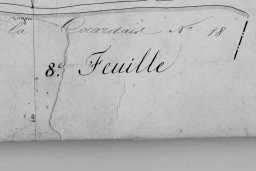 la Courdais N° 18
8.e Feuille